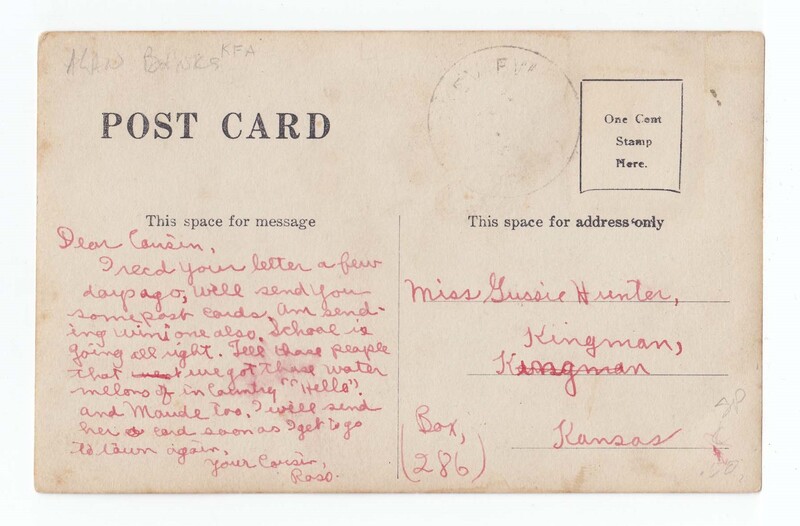 KFA
POST CARD
One Cent
Stamp
Here.
This space for message
Dear Cousin,
I recd your letter a few
days ago, will send you
some post cards. Am send-
ing Wini one also. School is
going all right. Tell those people
that we got those water
mellons of in Country "Hello".
and Maude too, I will send
her a card soon as I get to go
to town again,
Your Cousin,
This space for address only
Miss Gussie Hunter,
Kingman,
Kingman
Kansas
(Box,
286)